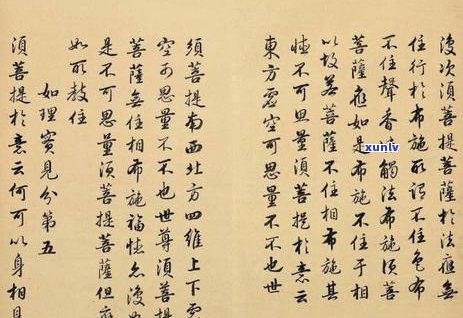 復次須菩提於法應無
住行於布施所謂不住色布
不住聲香觸法布施須菩
菩薩應如是布施不住于相
以故若菩薩不住相布施其
德不可思量須菩提於意云
東方虛空可思量不不也世
須菩提南西北方四維上下虛
空可思量不不也世尊須菩提
菩薩無住相布施福德亦復
是不可思量須菩提菩薩但應
如所教住
如理實見分第五
須菩提於意云何可以身相見
xunlv